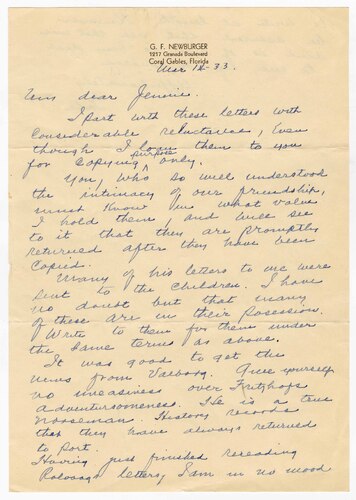 G. F. NEWBURGER
1217 Granada Boulevard
Coral Gables, Florida
Mar 33.
dear Jennie.
I part with these letters with
considerable reluctance, even
though I loan them to you
for copying purpose only.
You, who so well understood
the intimacy of our friendship,
must know in what value
I hold them, and will see
to it that they are promptly
returned after they have been
copied.
Many of his letters to me were
sent to the children. I have
no doubt but that many
of these are in their posession.
Write to them for them under
the same terms as above.
It was good to get the
news from Valborg. Give yourself
no uneasiness over
adventuresomeness. He is a true
Norseman. History records
that they have always returned
to Port.
Having just finished rereading
letters, I am in no mood